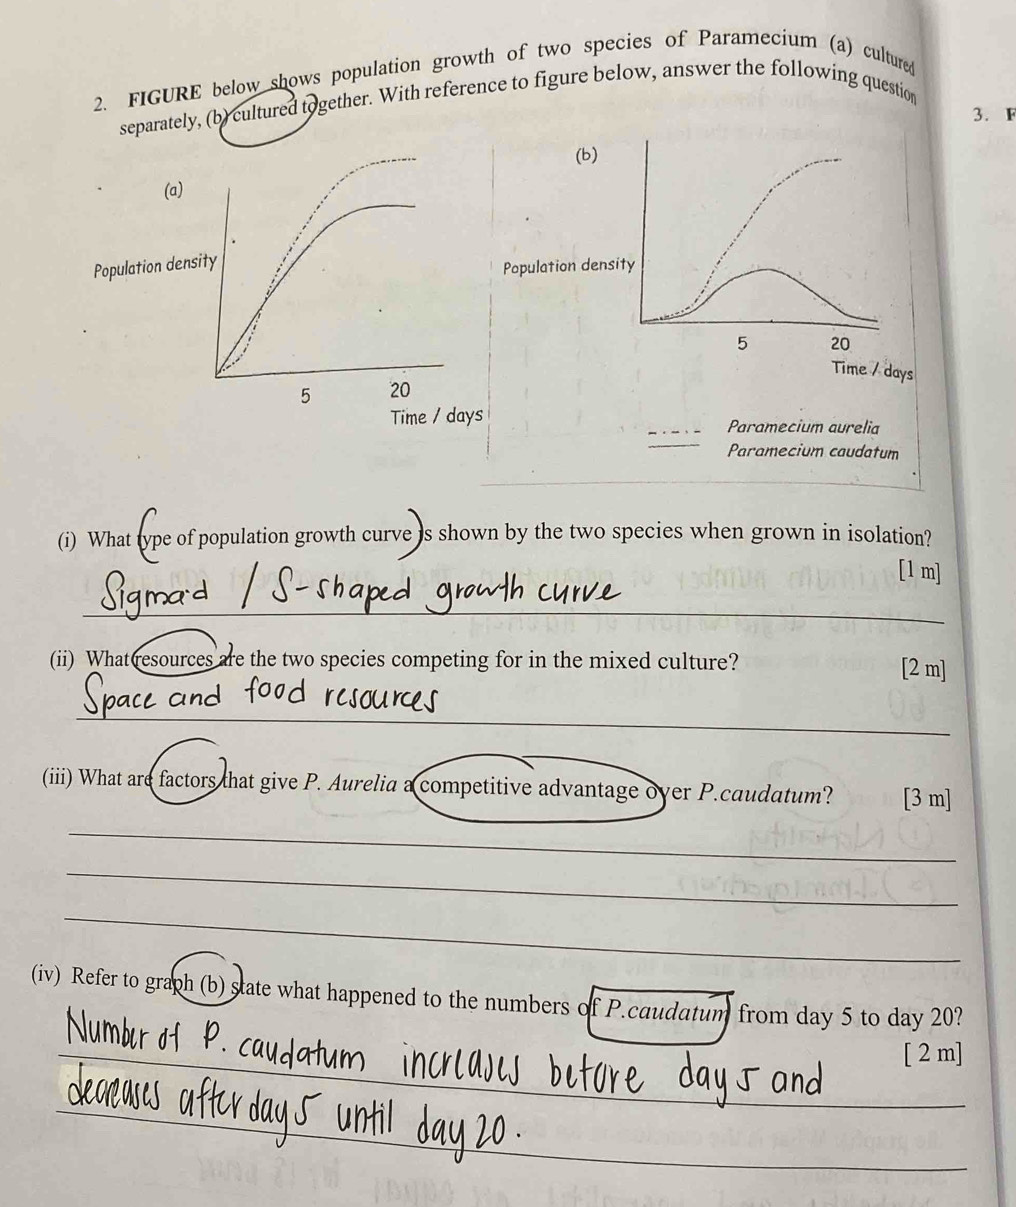 2. FIGURE below shows population growth of two species of Paramecium (a) cultured
separately, (b) cultured together. With reference to figure below, answer the following question
3. F
(a)
Population density
5 20
Time / days
(b)
Population density
5 20
Time / days
Paramecium aurelia
Paramecium caudatum
(i) What type of population growth curve is shown by the two species when grown in isolation?
[1 m]
Sigmaid / S-shaped growth curve
(ii) What resources are the two species competing for in the mixed culture?
[2 m]
Space and food resources
(iii) What are factors that give P. Aurelia a competitive advantage over P.caudatum?
[3 m]
(iv) Refer to graph (b) state what happened to the numbers of P.caudatum from day 5 to day 20?
[ 2 m]
Number of P. caudatum increases before day 5 and
decreases after day 5 until day 20.